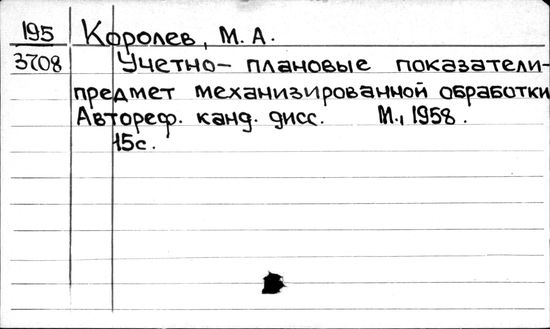 195 Королев, М. А.
3708 Учетно- плановые показатели-
предмет механизированной обработки
Автореф. канд. дисс. М., 1958.
15с.